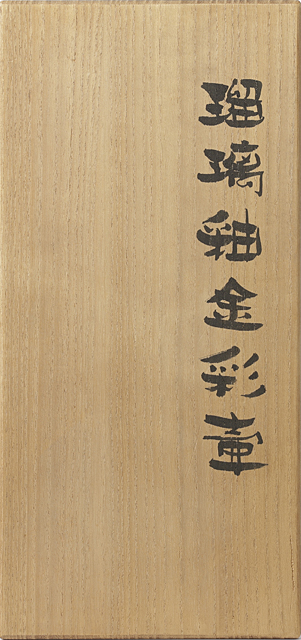 瑠璃釉金彩壷